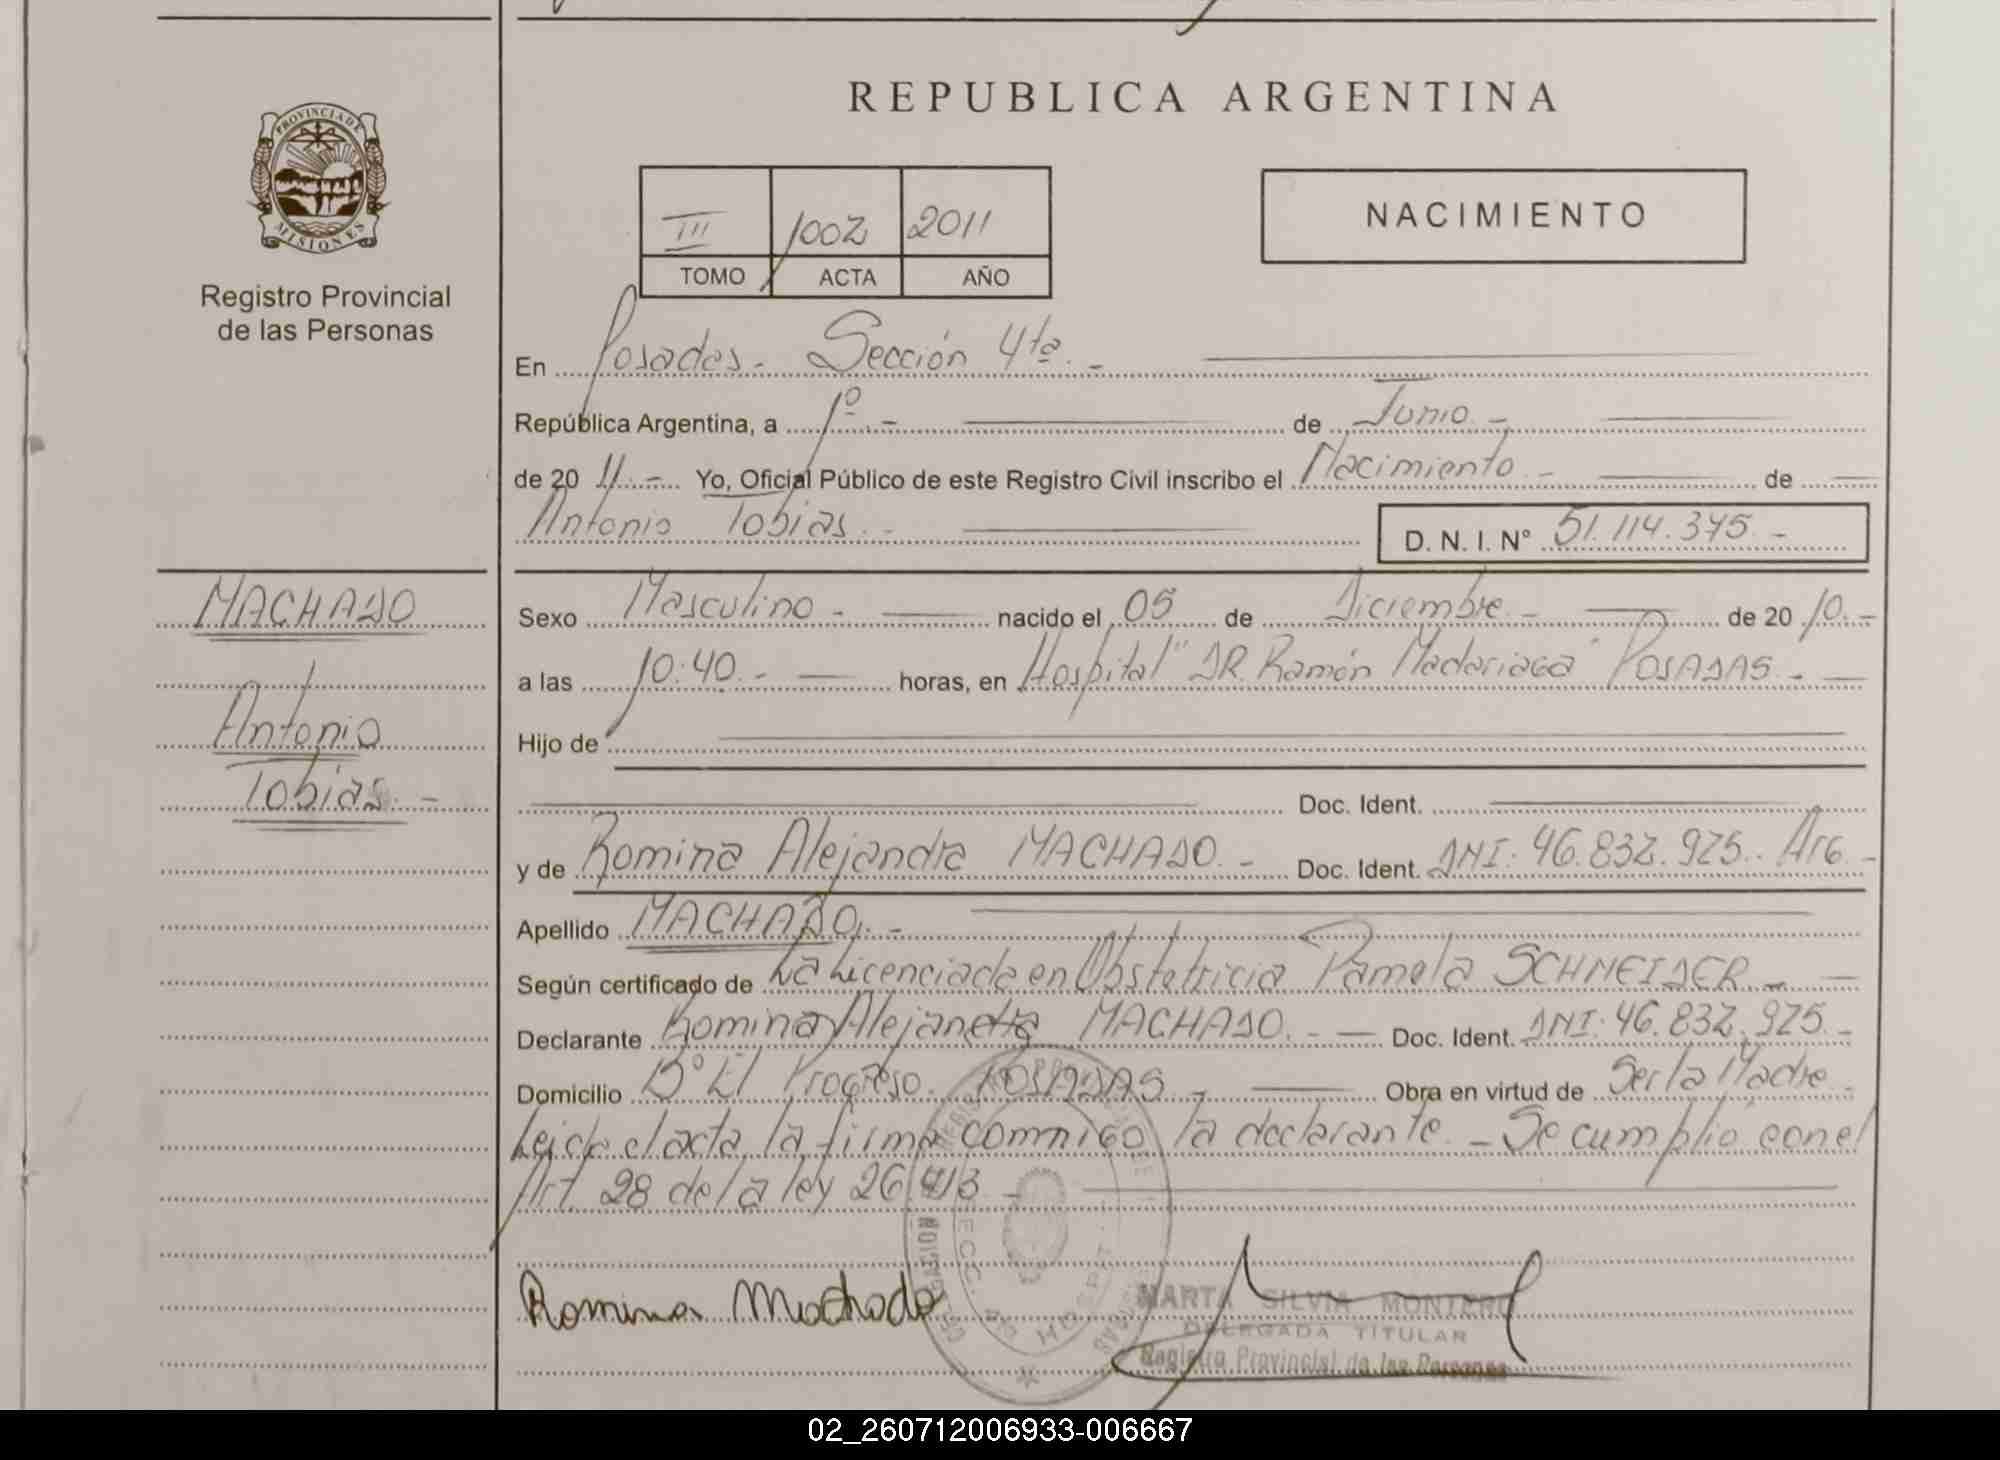 REPUBLICA ARGENTINA
PROVINCIA DE
MISIONES
Registro Provincial
de las Personas
III 1002 2011
TOMO ACTA AÑO
NACIMIENTO
En Posadas.- Sección 4ta.-
República Argentina, a 1º.- de Junio.-
de 2011.- Yo, Oficial Público de este Registro Civil inscribo el Nacimiento.- de
Antonio Tobias.- D. N. I. N° 51.114.375.-
MACHADO
Antonio
Tobias.-
Sexo Masculino.- nacido el 05 de Diciembre.- de 2010.-
a las 10:40.- horas, en Hospital "DR. Ramón Madariaga" POSADAS.-
Hijo de
Doc. Ident.
y de Romina Alejandra MACHADO.- Doc. Ident. DNI: 46.832.925.. Arg.-
Apellido MACHADO.-
Según certificado de La Licenciada en Obstetricia Pamela SCHNEIDER.-
Declarante Romina Alejandra MACHADO.- Doc. Ident. DNI: 46.832.925.-
Domicilio Bº El Progreso. POSADAS.- Obra en virtud de Ser la Madre.
Leida el acta, la firma conmigo la declarante.- Se cumplió con el
Art. 28 de la ley 26.413.-
Romina Machado
MARTA SILVIA MONTERO
DELEGADA TITULAR
Registro Provincial de las Personas
02_260712006933-006667